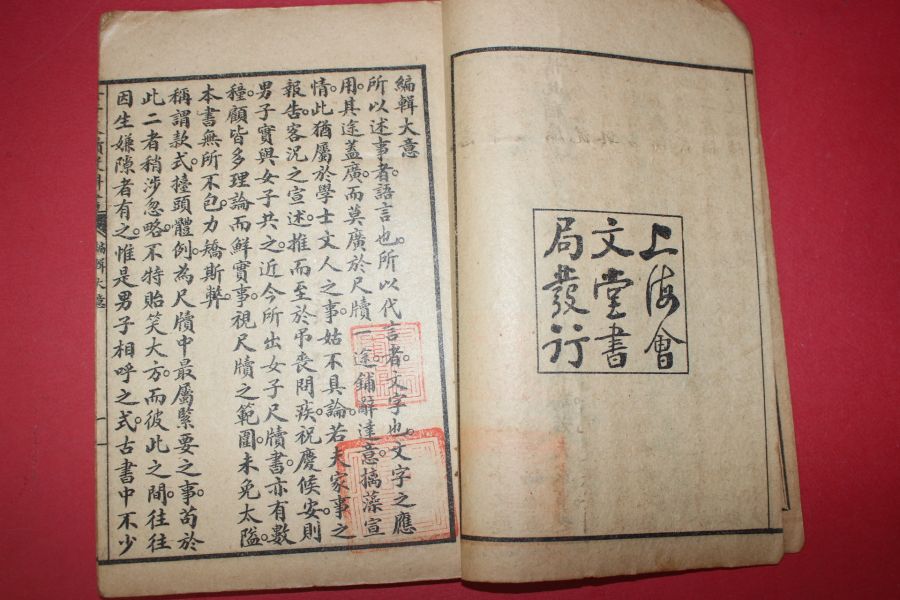 上海會
文堂書
局發行
編輯大意
所以述事者。語言也。所以代言者。文字也。文字之應
用。其途蓋廣。而莫廣於尺牘一途。鋪辭達意。摛藻宣
情。此猶屬於學士文人之事。姑不具論。若夫家事之
報告。客況之宣述。推而至於弔喪問疾。祝慶候安。則
男子實與女子共之。近今所出女子尺牘書。亦有數
種。顧皆多理論而鮮實事。視尺牘之範圍。未免太隘。
本書無所不包。力矯斯弊。
稱謂款式。擡頭體例。為尺牘中最屬緊要之事。苟於
此二者稍涉忽略。不特貽笑大方。而彼此之間。往往
因生嫌隙者有之。惟是男子相呼之式。古書中不少
編輯大意